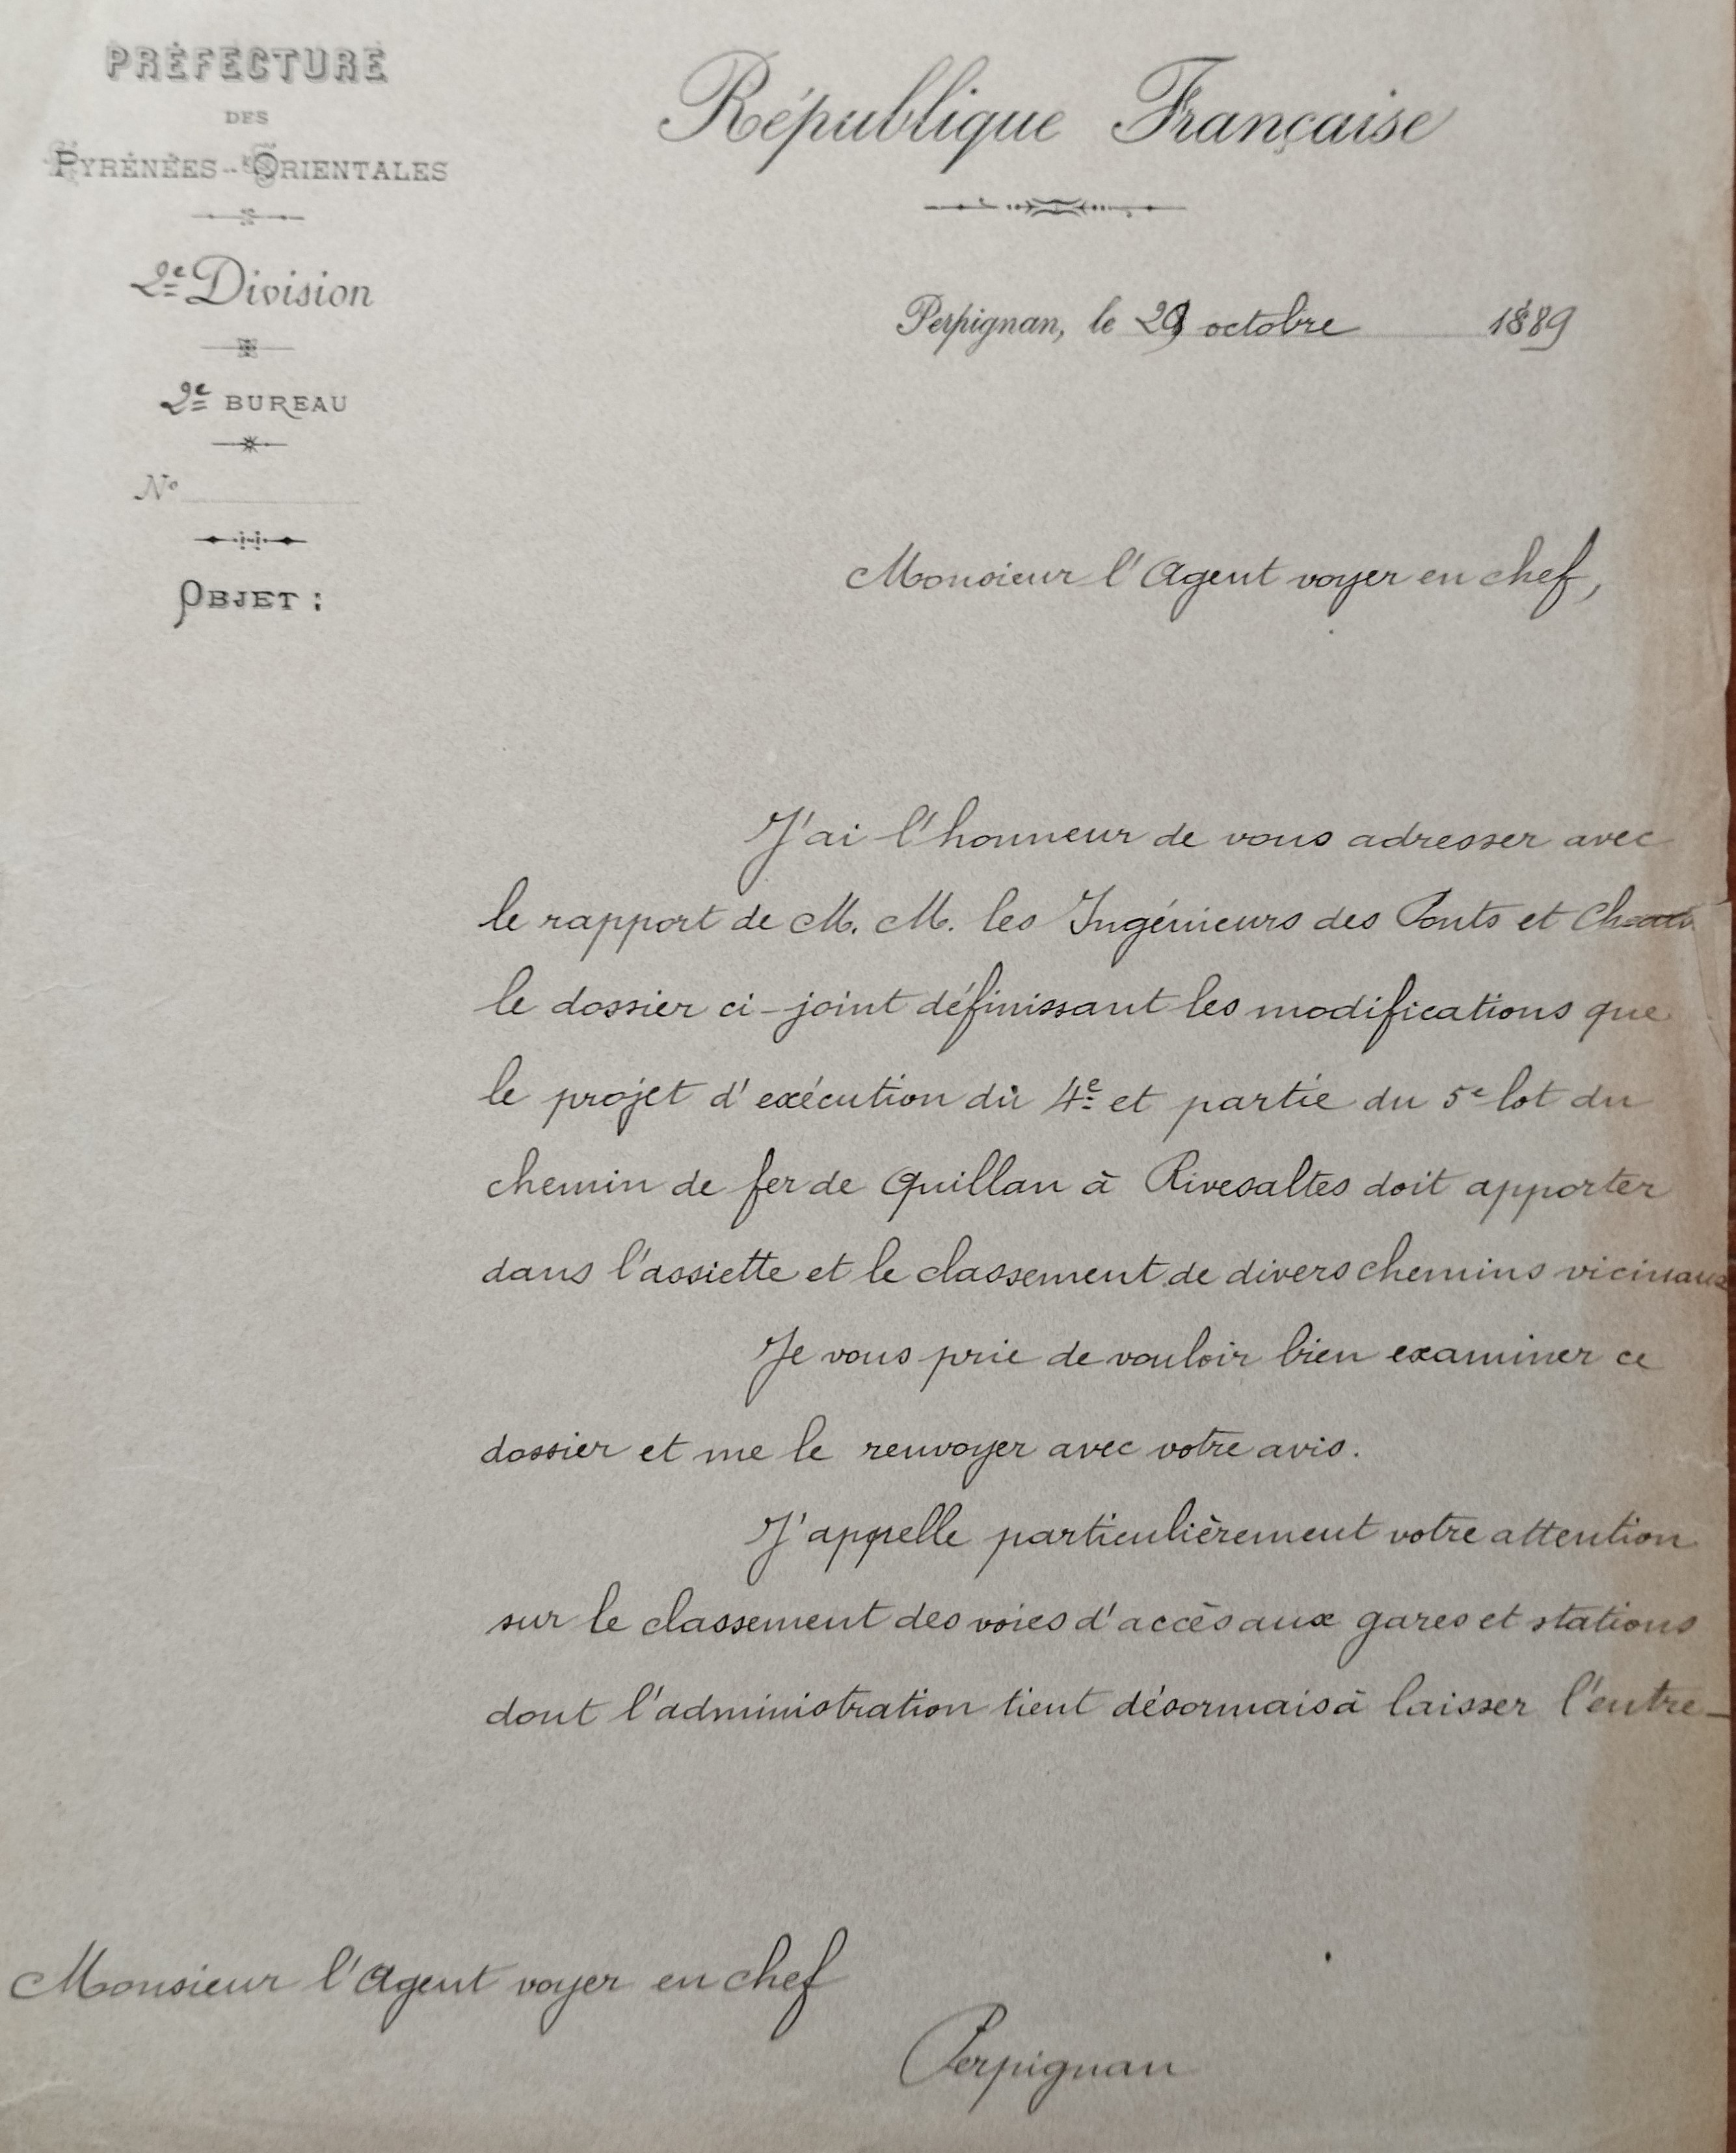 PRÉFECTURE
DES
PYRÉNÉES-ORIENTALES
2e Division
2e BUREAU
No
OBJET :
République Française
Perpignan, le 29 octobre 1889
Monsieur l'Agent voyer en chef,
J'ai l'honneur de vous adresser avec
le rapport de M. M. les Ingénieurs des Ponts et
le dossier ci-joint définissant les modifications que
le projet d'exécution du 4e et partie du 5e lot du
chemin de fer de Quillan à Rivesaltes doit apporter
dans l'assiette et le classement de divers chemins vicinaux
Je vous prie de vouloir bien examiner ce
dossier et me le renvoyer avec votre avis.
J'appelle particulièrement votre attention
sur le classement des voies d'accès aux gares et stations
dont l'administration tient désormais à laisser l'entre-
Monsieur l'Agent voyer en chef
Perpignan